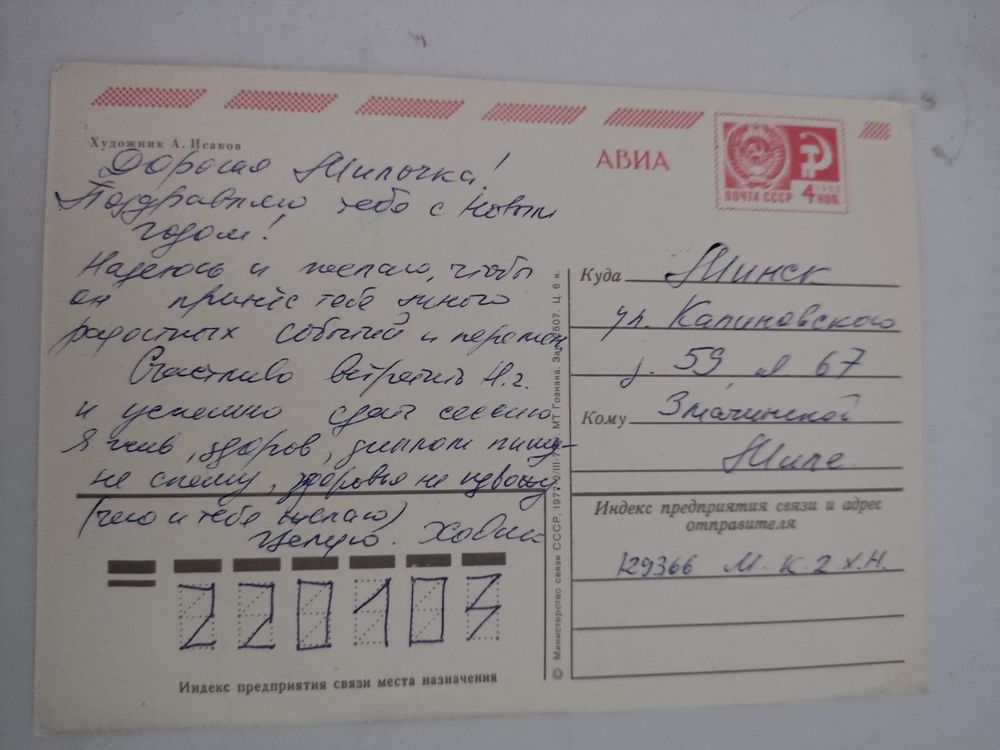 Художник А. Исаков
АВИА
ПОЧТА СССР
4 КОП.
Дорогая Милочка!
Поздравляю тебя с Новым
годом!
Надеюсь и желаю, чтобы
он принёс тебе много
радостных событий и перемен
Счастливо встретить Н.г.
и успешно сдать сессию
Я жив, здоров, диплом пишу-
не спешу, здоровья не
(чего и тебе желаю)
Целую.
220103
Индекс предприятия связи места назначения
© Министерство связи СССР, 1977. МТ Гознака. Ц. 6 к.
Куда Минск
ул. Калиновского
д. 59, 67
Кому
Миле
Индекс предприятия связи и адрес
отправителя
129366 М. К. 2 Х.Н.